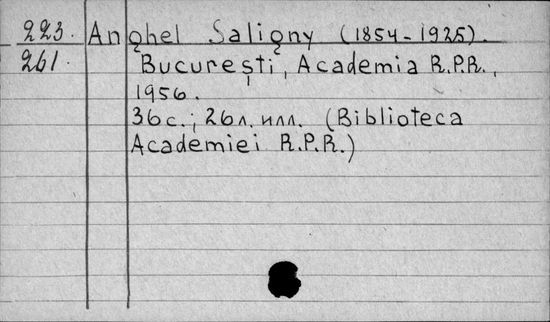 223. Anghel Saligny (1854-1925).
261. București, Academia R.P.R.,
1956.
36с.; 26л. илл. (Biblioteca
Academiei R.P.R.)